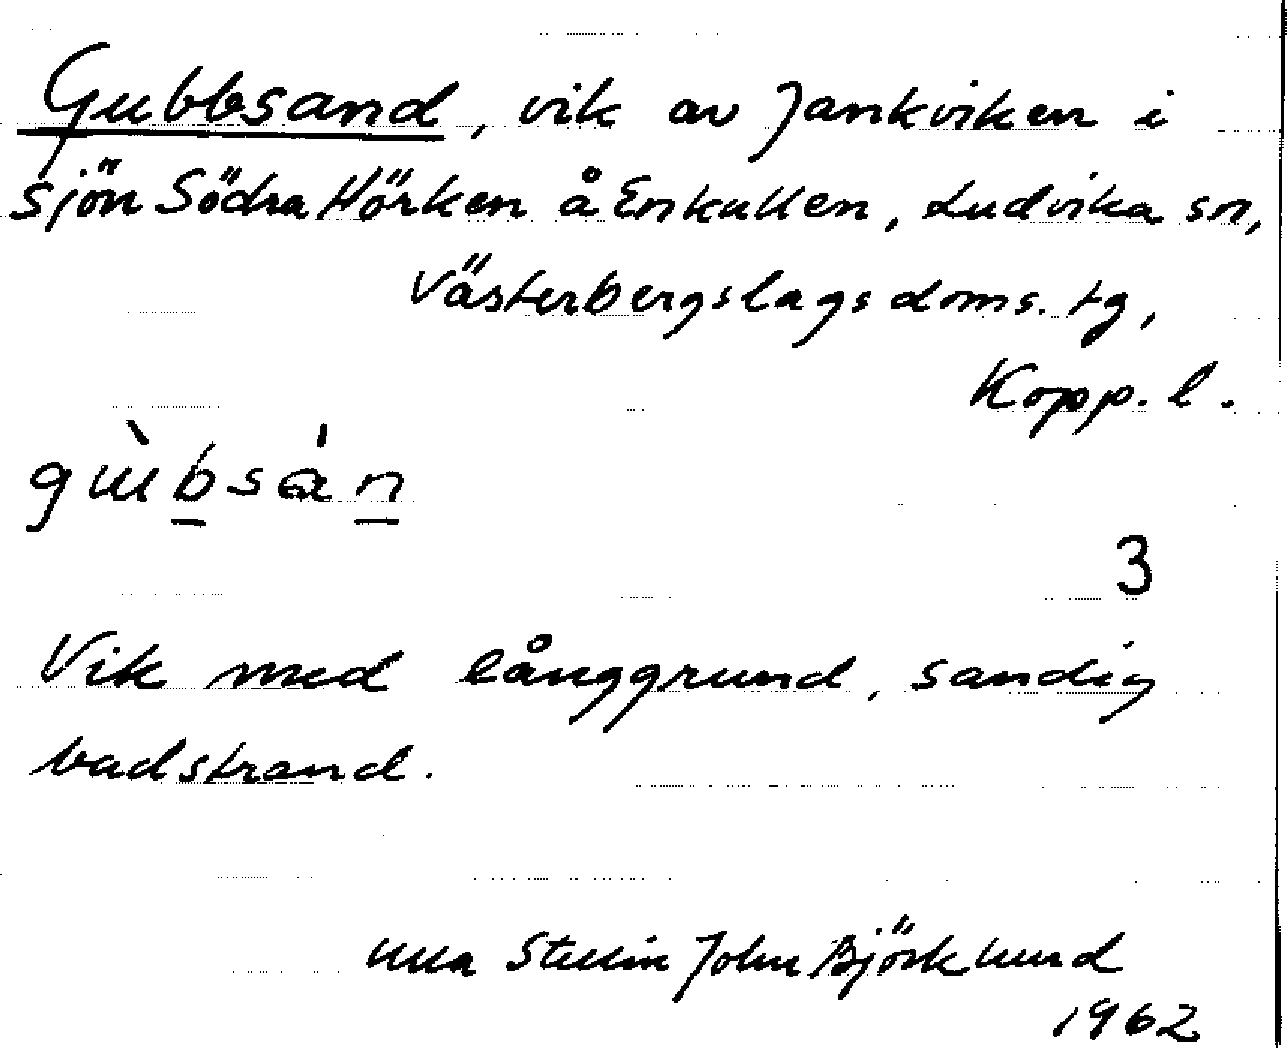 Gubbsand, vik av Jankviken i
sjön Södra Hörken å Enkullen, Ludvika sn,
Västerbergslags doms. tg,
Kopp. l.
gɯ̀bsán
3
Vik med långgrund, sandig
badstrand.
Ulla Stellin John Björklund
1962